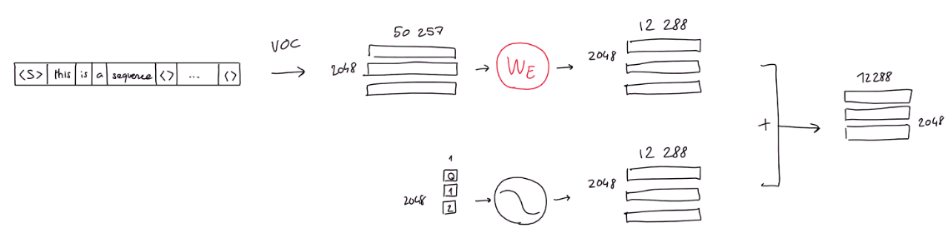 <S> this is a sequence <> ... <>
VOC
50 257
2048
WE
12 288
2048
1
2048
0
1
2
12 288
2048
+
12288
2048